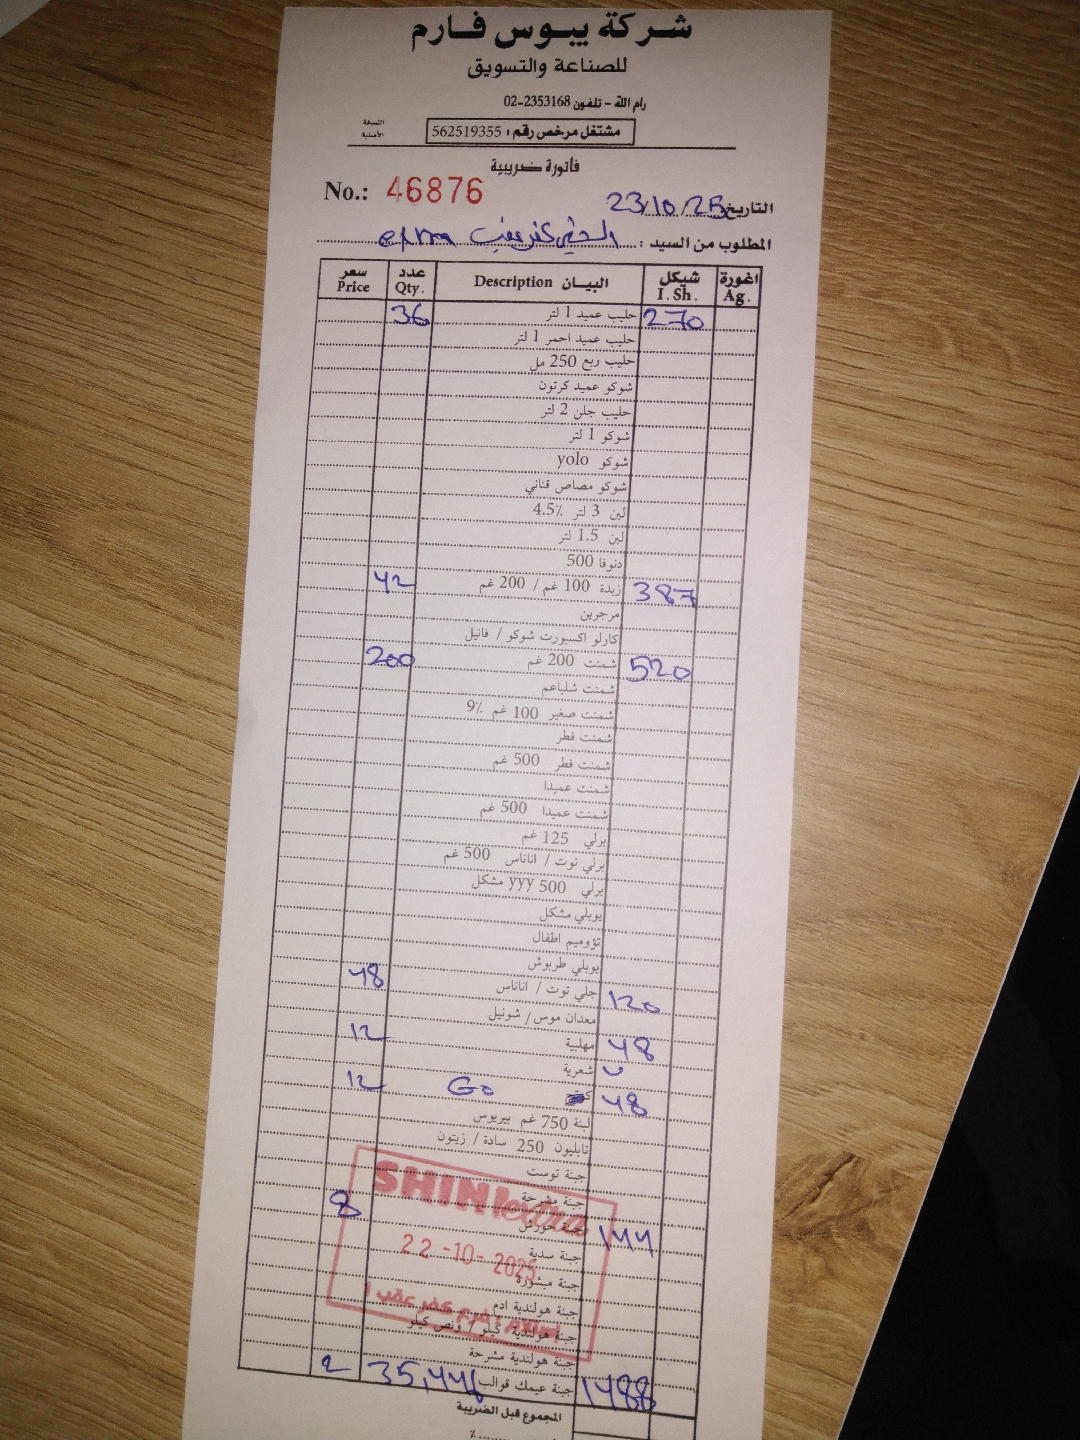 شركة يبوس فارم
للصناعة والتسويق
رام الله - تلفون 02-2353168
النسخة الأصلية
مشتغل مرخص رقم: 562519355
فاتورة ضريبية
No.: 46876
التاريخ 23/10/25
المطلوب من السيد: extra
سعر Price عدد Qty. البيـان Description شيكل I.Sh. اغورة Ag.
36 حليب عميد 1 لتر 270
حليب عميد احمر 1 لتر
حليب ربع 250 مل
شوكو عميد كرتون
حليب جلن 2 لتر
شوكو 1 لتر
شوكو yolo
شوكو مصاص قناني
لبن 3 لتر 4.5%
لبن 1.5 لتر
دنوفا 500
42 زبدة 100 غم / 200 غم 387
مرجرين
كارلو اكسبورت شوكو / فانيل
200 شمنت 200 غم 520
شمنت شلباعم
شمنت صغير 100 غم 9%
شمنت فطر
شمنت فطر 500 غم
شمنت عميدا
شمنت عميدا 500 غم
برلي 125 غم
برلي توت / اناناس 500 غم
برلي 500 yyy مشكل
يوبلي مشكل
تؤوميم اطفال
يوبلي طربوش
48 جلي توت / اناناس 120
معدان موس / شونيل
12 مهلبية 48
شعرية
12 Go 48
لبنة 750 غم بيريوس
نابليون 250 سادة / زيتون
جبنة توست
جبنة مشرحة
8 جبنة حورش 144
جبنة سدية
جبنة مبشورة
جبنة هولندية ادم
جبنة هولندية كيلو / ونص كيلو
جبنة هولندية مشرحة
2 جبنة عيمك قوالب 35,446 1488
المجموع قبل الضريبة
%
SHINI extra
22-10-2025